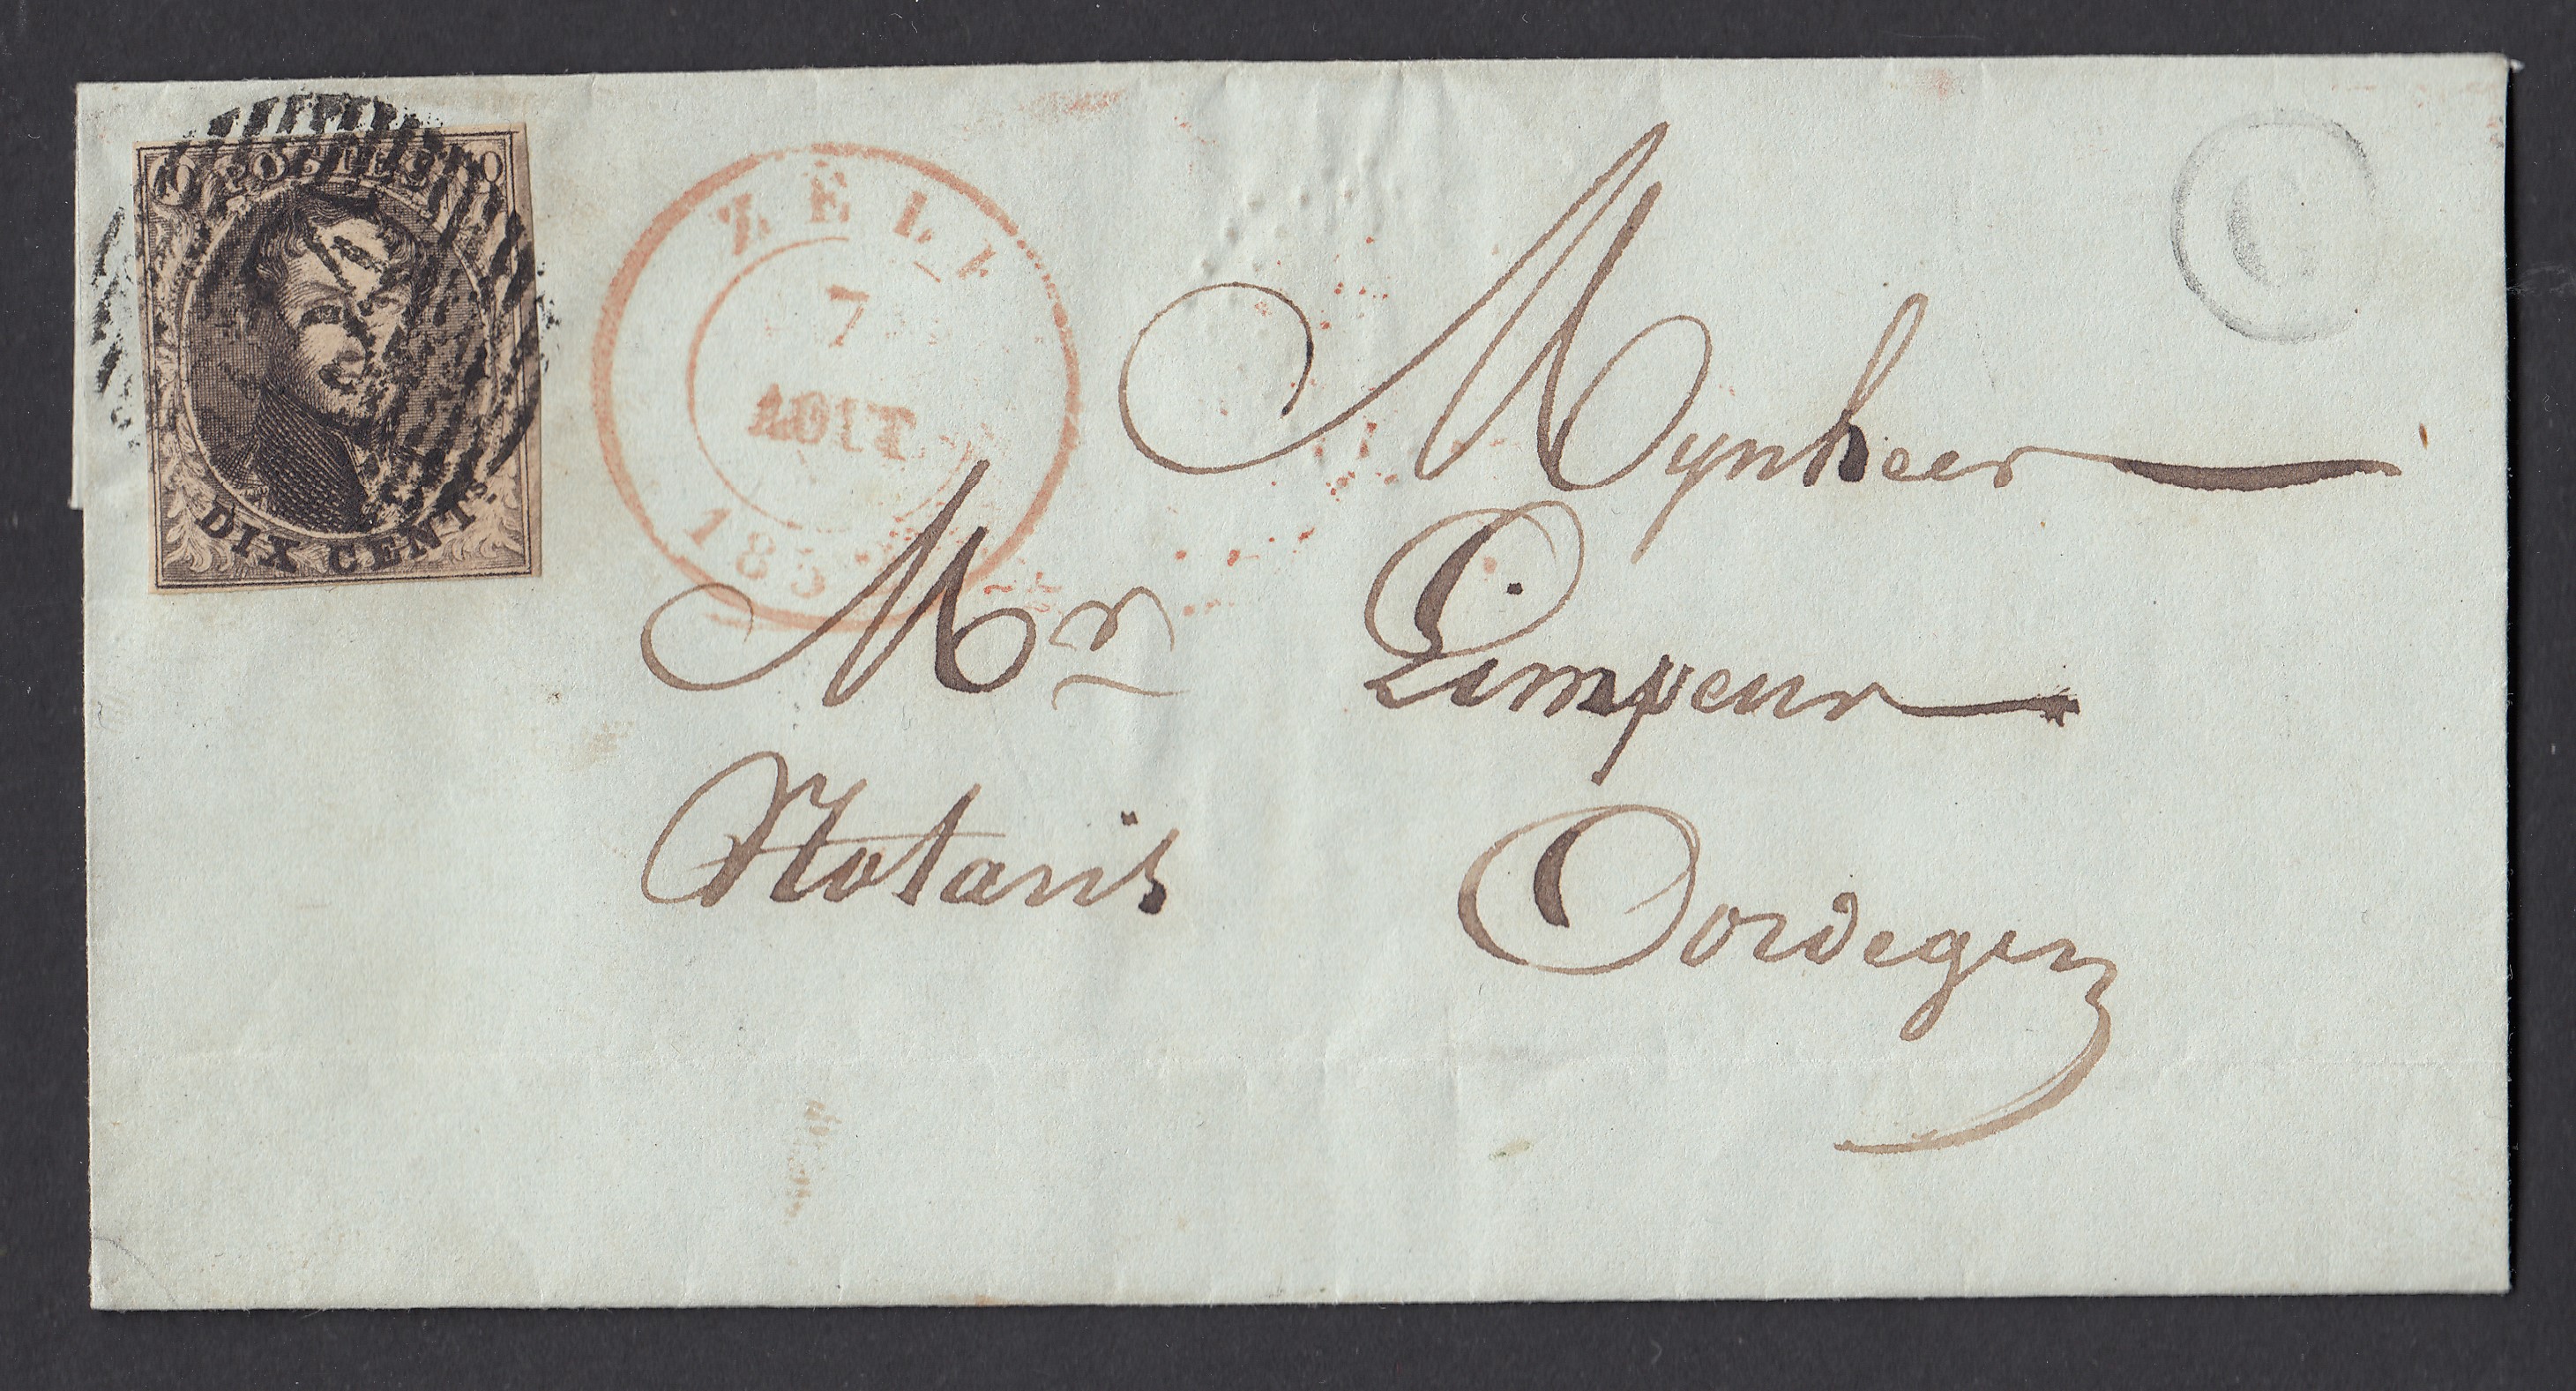 10 POSTES 10
DIX CENTS.
ZELE
7
AOUT
185
C
Mynheer
Mr Limpeur
Notaris
Oordegem